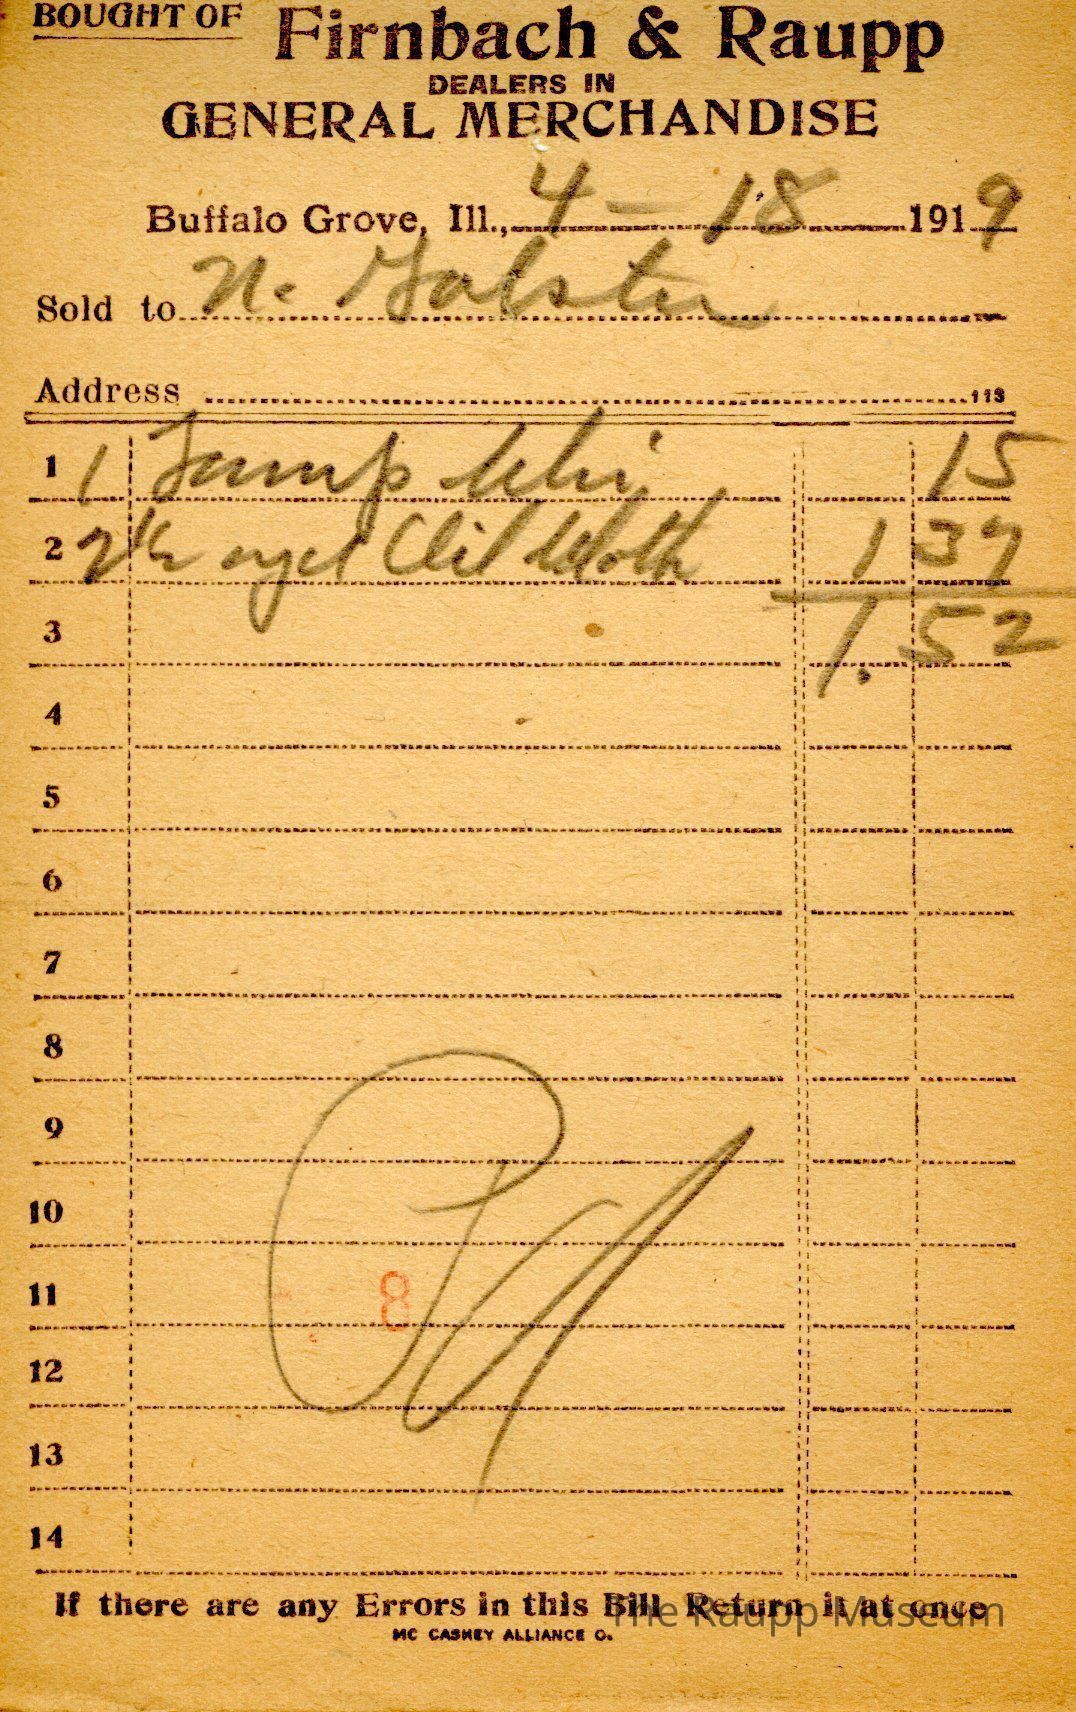 BOUGHT OF Firnbach & Raupp
DEALERS IN
GENERAL MERCHANDISE
Buffalo Grove, Ill., 4-18 1919
Sold to N.
Address 113
1 1 Lamp Chi 15
2 2½ Oil Cloth 1 37
3 1.52
4
5
6
7
8
9
10
11 8
12
13
14
If there are any Errors in this Bill Return it at once
The Raupp Museum
MC CASKEY ALLIANCE O.